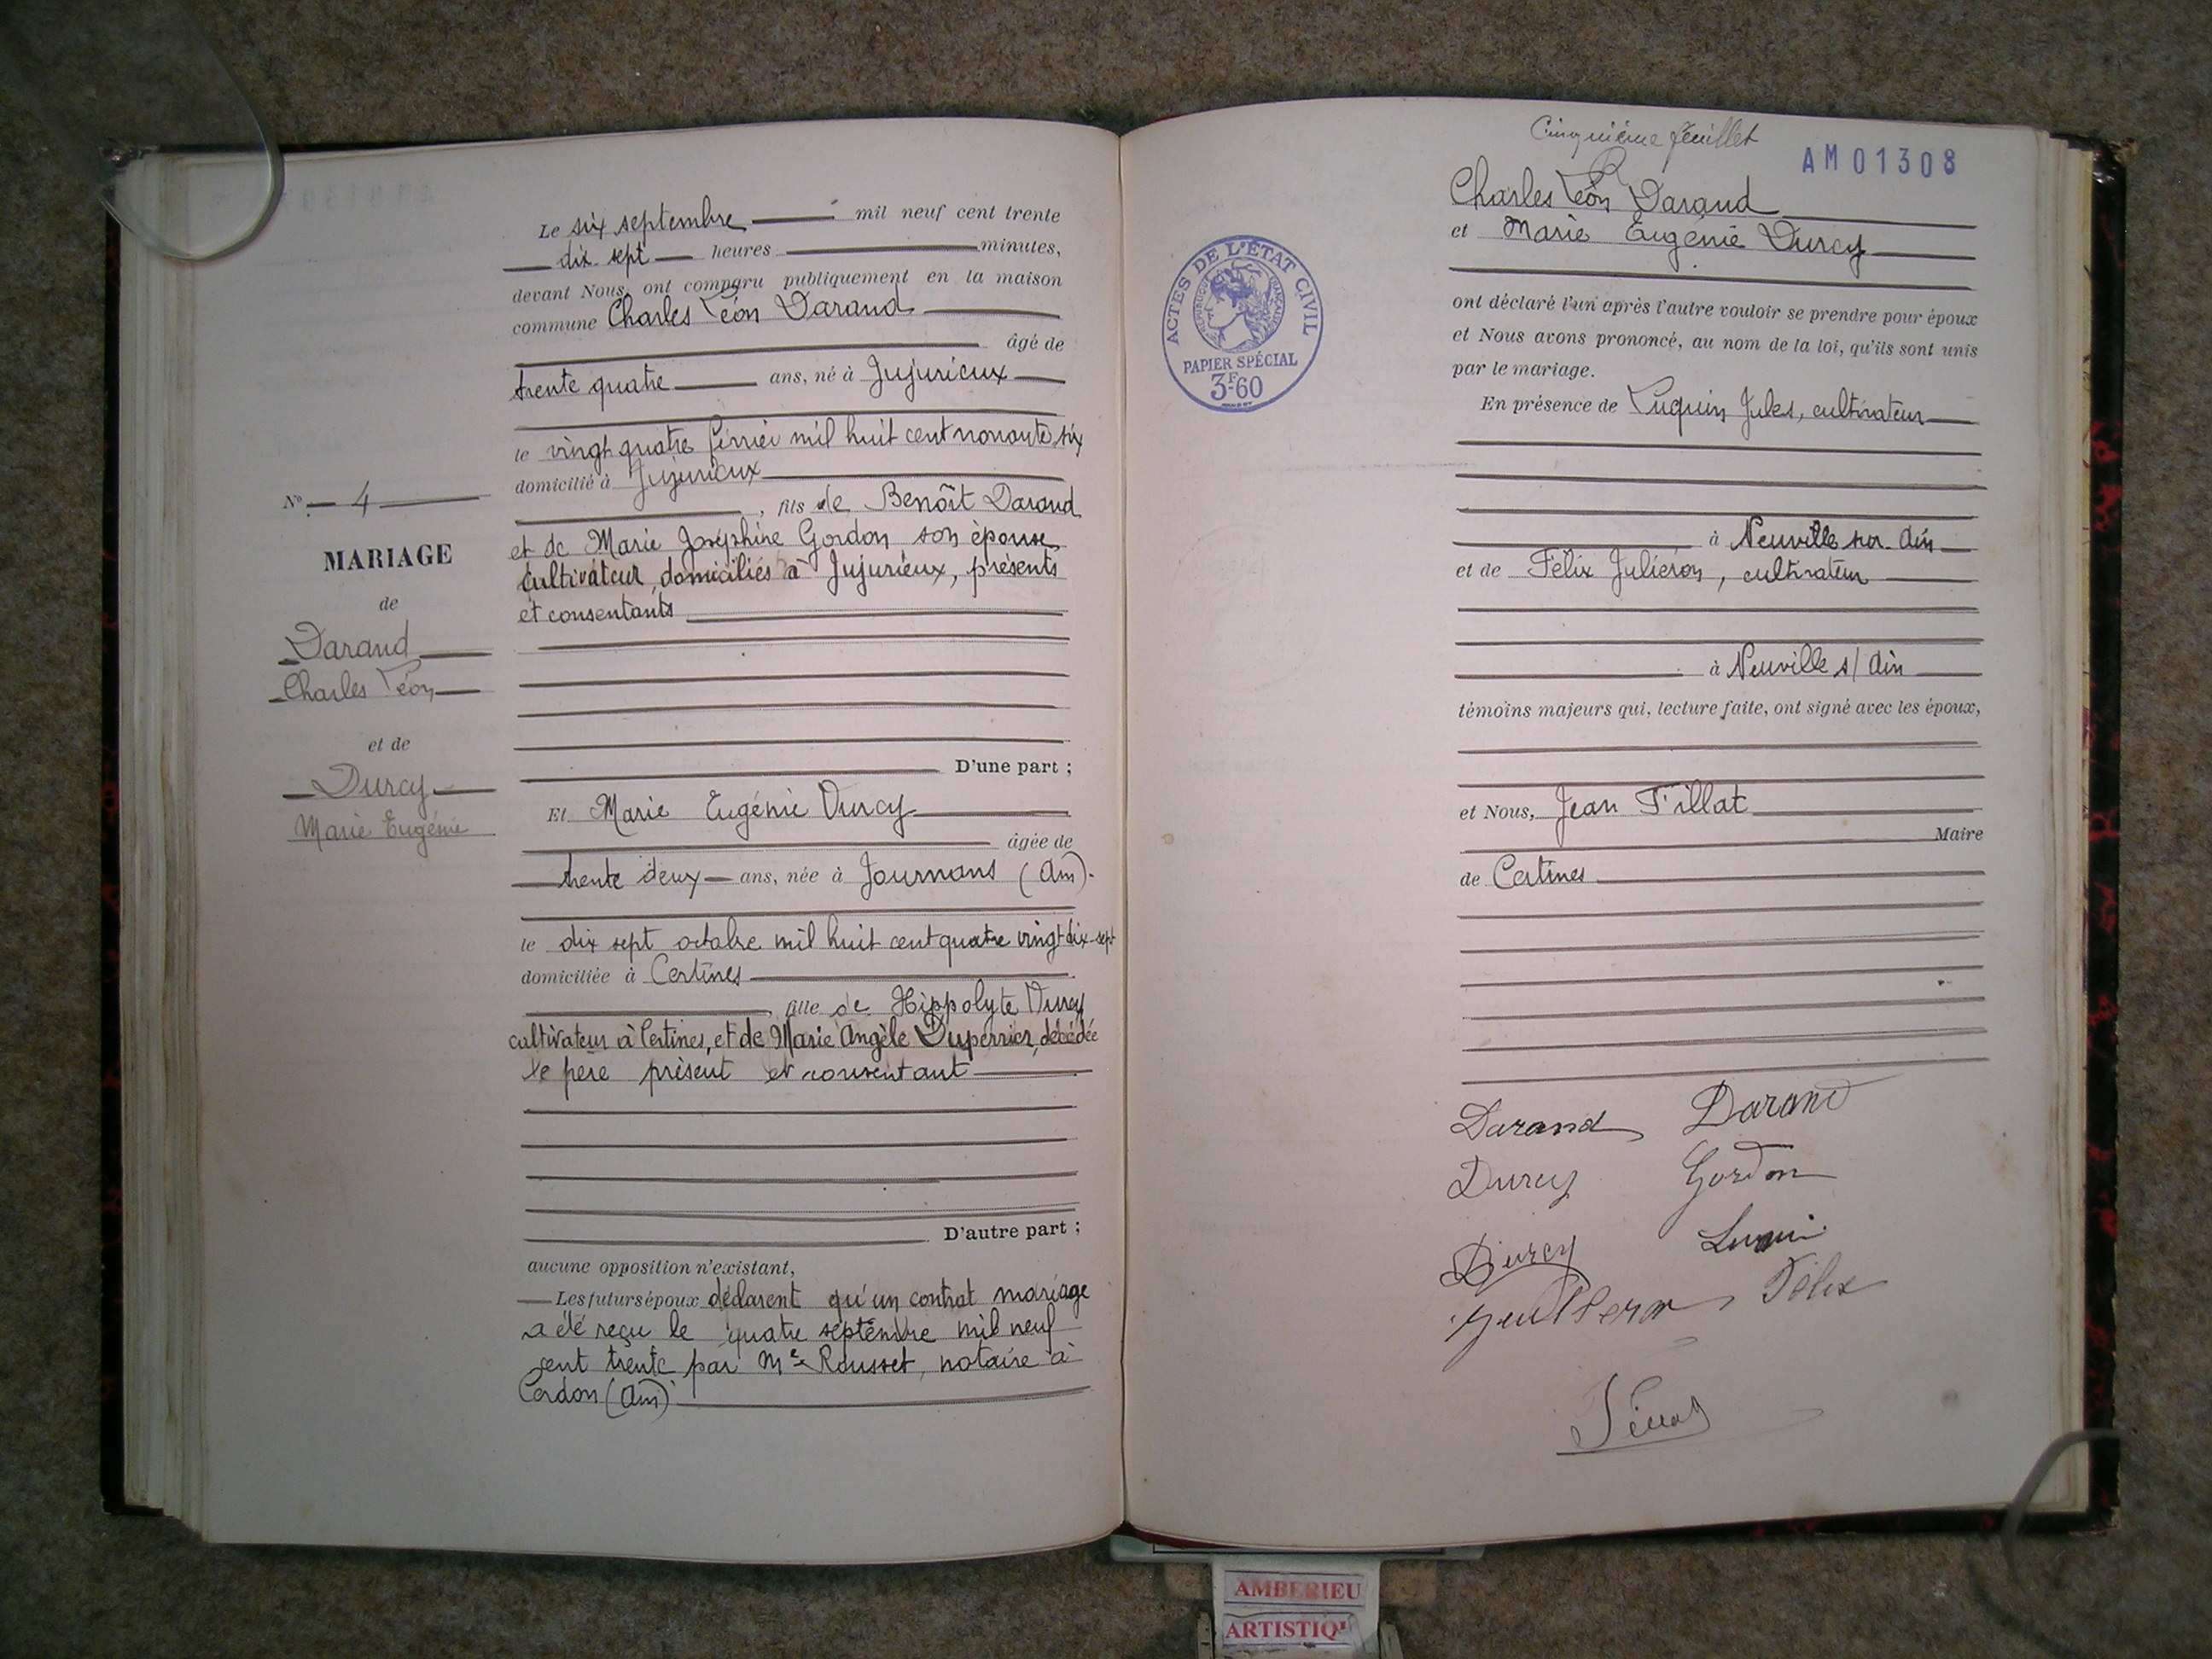 Le six septembre mil neuf cent trente
dix sept heures minutes,
devant Nous, ont comparu publiquement en la maison
commune Charles Léon Darand
âgé de
trente quatre ans, né à Jujurieux
le vingt quatre février mil huit cent nonante six
domicilié à Jujurieux
, fils de Benoît Darand
et de Marie Joséphine Gordon son épouse
cultivateur, domiciliés à Jujurieux, présents
et consentants
D'une part ;
Et Marie Eugénie Durcy
âgée de
trente deux ans, née à Journans (Ain).
le dix sept octobre mil huit cent quatre vingt dix-sept
domiciliée à Certines
, fille de Hippolyte Durcy
cultivateur à Certines, et de Marie Angèle Duperrier, décédée
le père présent et consentant
D'autre part ;
aucune opposition n'existant,
Les futurs époux déclarent qu'un contrat mariage
a été reçu le quatre septembre mil neuf
cent trente par Me Rousset, notaire à
Cerdon (Ain)
No 4
MARIAGE
de
Darand
Charles Léon
et de
Durcy
Marie Eugénie
Cinquième feuillet
AM01308
Charles Léon Darand
et Marie Eugénie Durcy
ont déclaré l'un après l'autre vouloir se prendre pour époux
et Nous avons prononcé, au nom de la loi, qu'ils sont unis
par le mariage.
En présence de Luquin Jules, cultivateur
à Neuville sur Ain
et de Félix Juliéron, cultivateur
à Neuville s/ Ain
témoins majeurs qui, lecture faite, ont signé avec les époux,
et Nous, Jean Tillat
Maire
de Certines
Darand Darand
Durcy Gordon
Durcy
Félix
ACTES DE L'ÉTAT CIVIL
RÉPUBLIQUE FRANÇAISE
PAPIER SPÉCIAL
3F60
AMBERIEU
ARTISTIQU